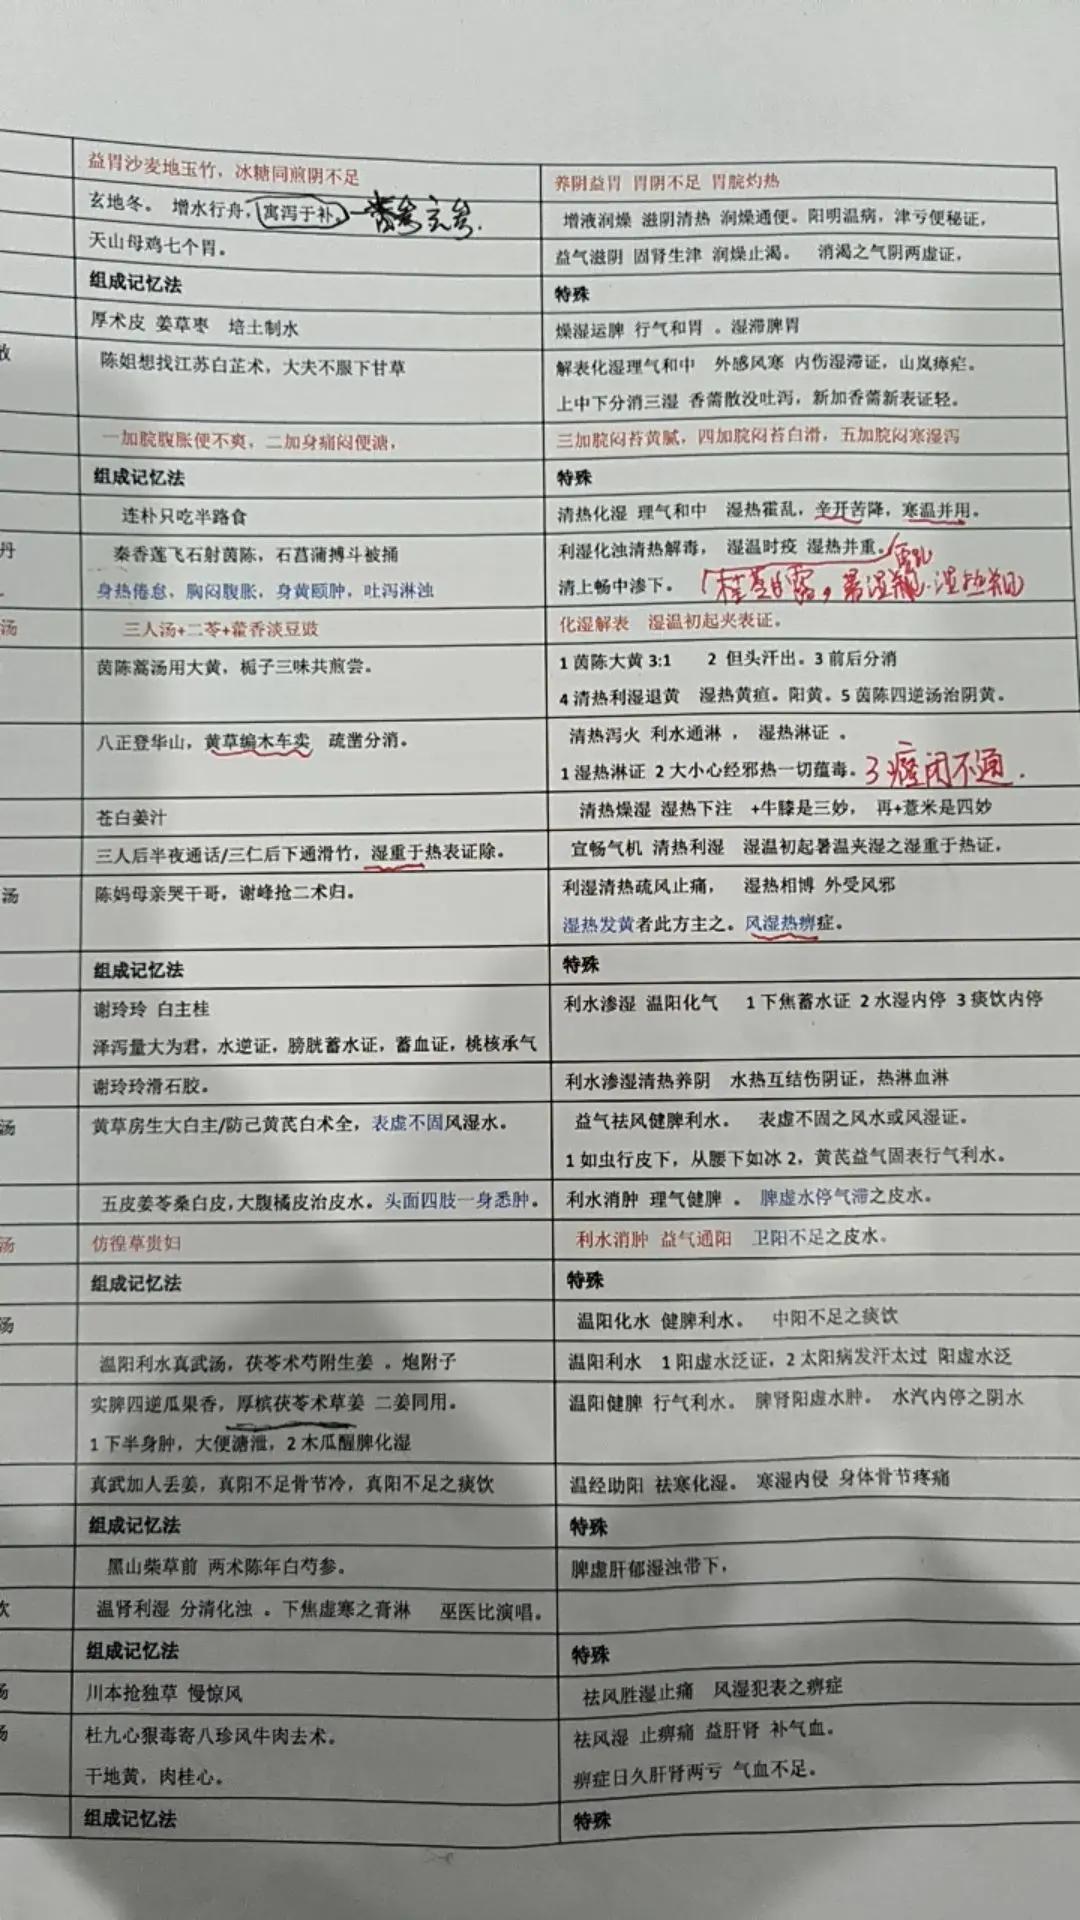 益胃沙麦地玉竹，冰糖同煎阴不足
养阴益胃 胃阴不足 胃脘灼热
玄地冬。 增水行舟，寓泻于补。
增液润燥 滋阴清热 润燥通便。阳明温病，津亏便秘证，
天山母鸡七个胃。
益气滋阴 固肾生津 润燥止渴。 消渴之气阴两虚证，
组成记忆法
特殊
厚术皮 姜草枣 培土制水
燥湿运脾 行气和胃 。湿滞脾胃
散
陈姐想找江苏白芷术，大夫不服下甘草
解表化湿理气和中 外感风寒 内伤湿滞证，山岚瘴疟。
上中下分消三湿 香薷散没吐泻，新加香薷新表证轻。
一加脘腹胀便不爽，二加身痛闷便溏，
三加脘闷苔黄腻，四加脘闷苔白滑，五加脘闷寒湿泻
组成记忆法
特殊
连朴只吃半路食
清热化湿 理气和中 湿热霍乱，辛开苦降，寒温并用。
丹
秦香莲飞石射茵陈，石菖蒲搏斗被捅
利湿化浊清热解毒， 湿温时疫 湿热并重。
身热倦怠，胸闷腹胀，身黄颐肿，吐泻淋浊
清上畅中渗下。
汤
三人汤+二苓+藿香淡豆豉
化湿解表 湿温初起夹表证。
茵陈蒿汤用大黄，栀子三味共煎尝。
1 茵陈大黄 3:1 2 但头汗出。3 前后分消
4 清热利湿退黄 湿热黄疸。阳黄。5 茵陈四逆汤治阴黄。
八正登华山，黄草编木车卖 疏凿分消。
清热泻火 利水通淋 ， 湿热淋证 。
1 湿热淋证 2 大小心经邪热一切蕴毒。3 癃闭不通.
苍白姜汁
清热燥湿 湿热下注 +牛膝是三妙， 再+薏米是四妙
三人后半夜通话/三仁后下通滑竹，湿重于热表证除。
宣畅气机 清热利湿 湿温初起暑温夹湿之湿重于热证，
汤
陈妈母亲哭干哥，谢峰抢二术归。
利湿清热疏风止痛， 湿热相博 外受风邪
湿热发黄者此方主之。风湿热痹症。
组成记忆法
特殊
谢玲玲 白主桂
利水渗湿 温阳化气 1 下焦蓄水证 2 水湿内停 3 痰饮内停
泽泻量大为君，水逆证，膀胱蓄水证，蓄血证，桃核承气
谢玲玲滑石胶。
利水渗湿清热养阴 水热互结伤阴证，热淋血淋
汤
黄草房生大白主/防己黄芪白术全，表虚不固风湿水。
益气祛风健脾利水。 表虚不固之风水或风湿证。
1 如虫行皮下，从腰下如冰 2，黄芪益气固表行气利水。
五皮姜苓桑白皮，大腹橘皮治皮水。头面四肢一身悉肿。
利水消肿 理气健脾 。 脾虚水停气滞之皮水。
汤
仿徨草贵妇
利水消肿 益气通阳 卫阳不足之皮水。
组成记忆法
特殊
汤
温阳化水 健脾利水。 中阳不足之痰饮
温阳利水真武汤，茯苓术芍附生姜 。炮附子
温阳利水 1 阳虚水泛证，2 太阳病发汗太过 阳虚水泛
实脾四逆瓜果香，厚槟茯苓术草姜 二姜同用。
温阳健脾 行气利水。 脾肾阳虚水肿。 水汽内停之阴水
1 下半身肿，大便溏泄，2 木瓜醒脾化湿
真武加人丢姜，真阳不足骨节冷，真阳不足之痰饮
温经助阳 祛寒化湿。 寒湿内侵 身体骨节疼痛
组成记忆法
特殊
黑山柴草前 两术陈年白芍参。
脾虚肝郁湿浊带下，
饮
温肾利湿 分清化浊 。下焦虚寒之膏淋 巫医比演唱。
组成记忆法
特殊
汤
川本抢独草 慢惊风
祛风胜湿止痛 风湿犯表之痹症
汤
杜九心狠毒寄八珍风牛肉去术。
祛风湿 止痹痛 益肝肾 补气血。
干地黄，肉桂心。
痹症日久肝肾两亏 气血不足。
组成记忆法
特殊